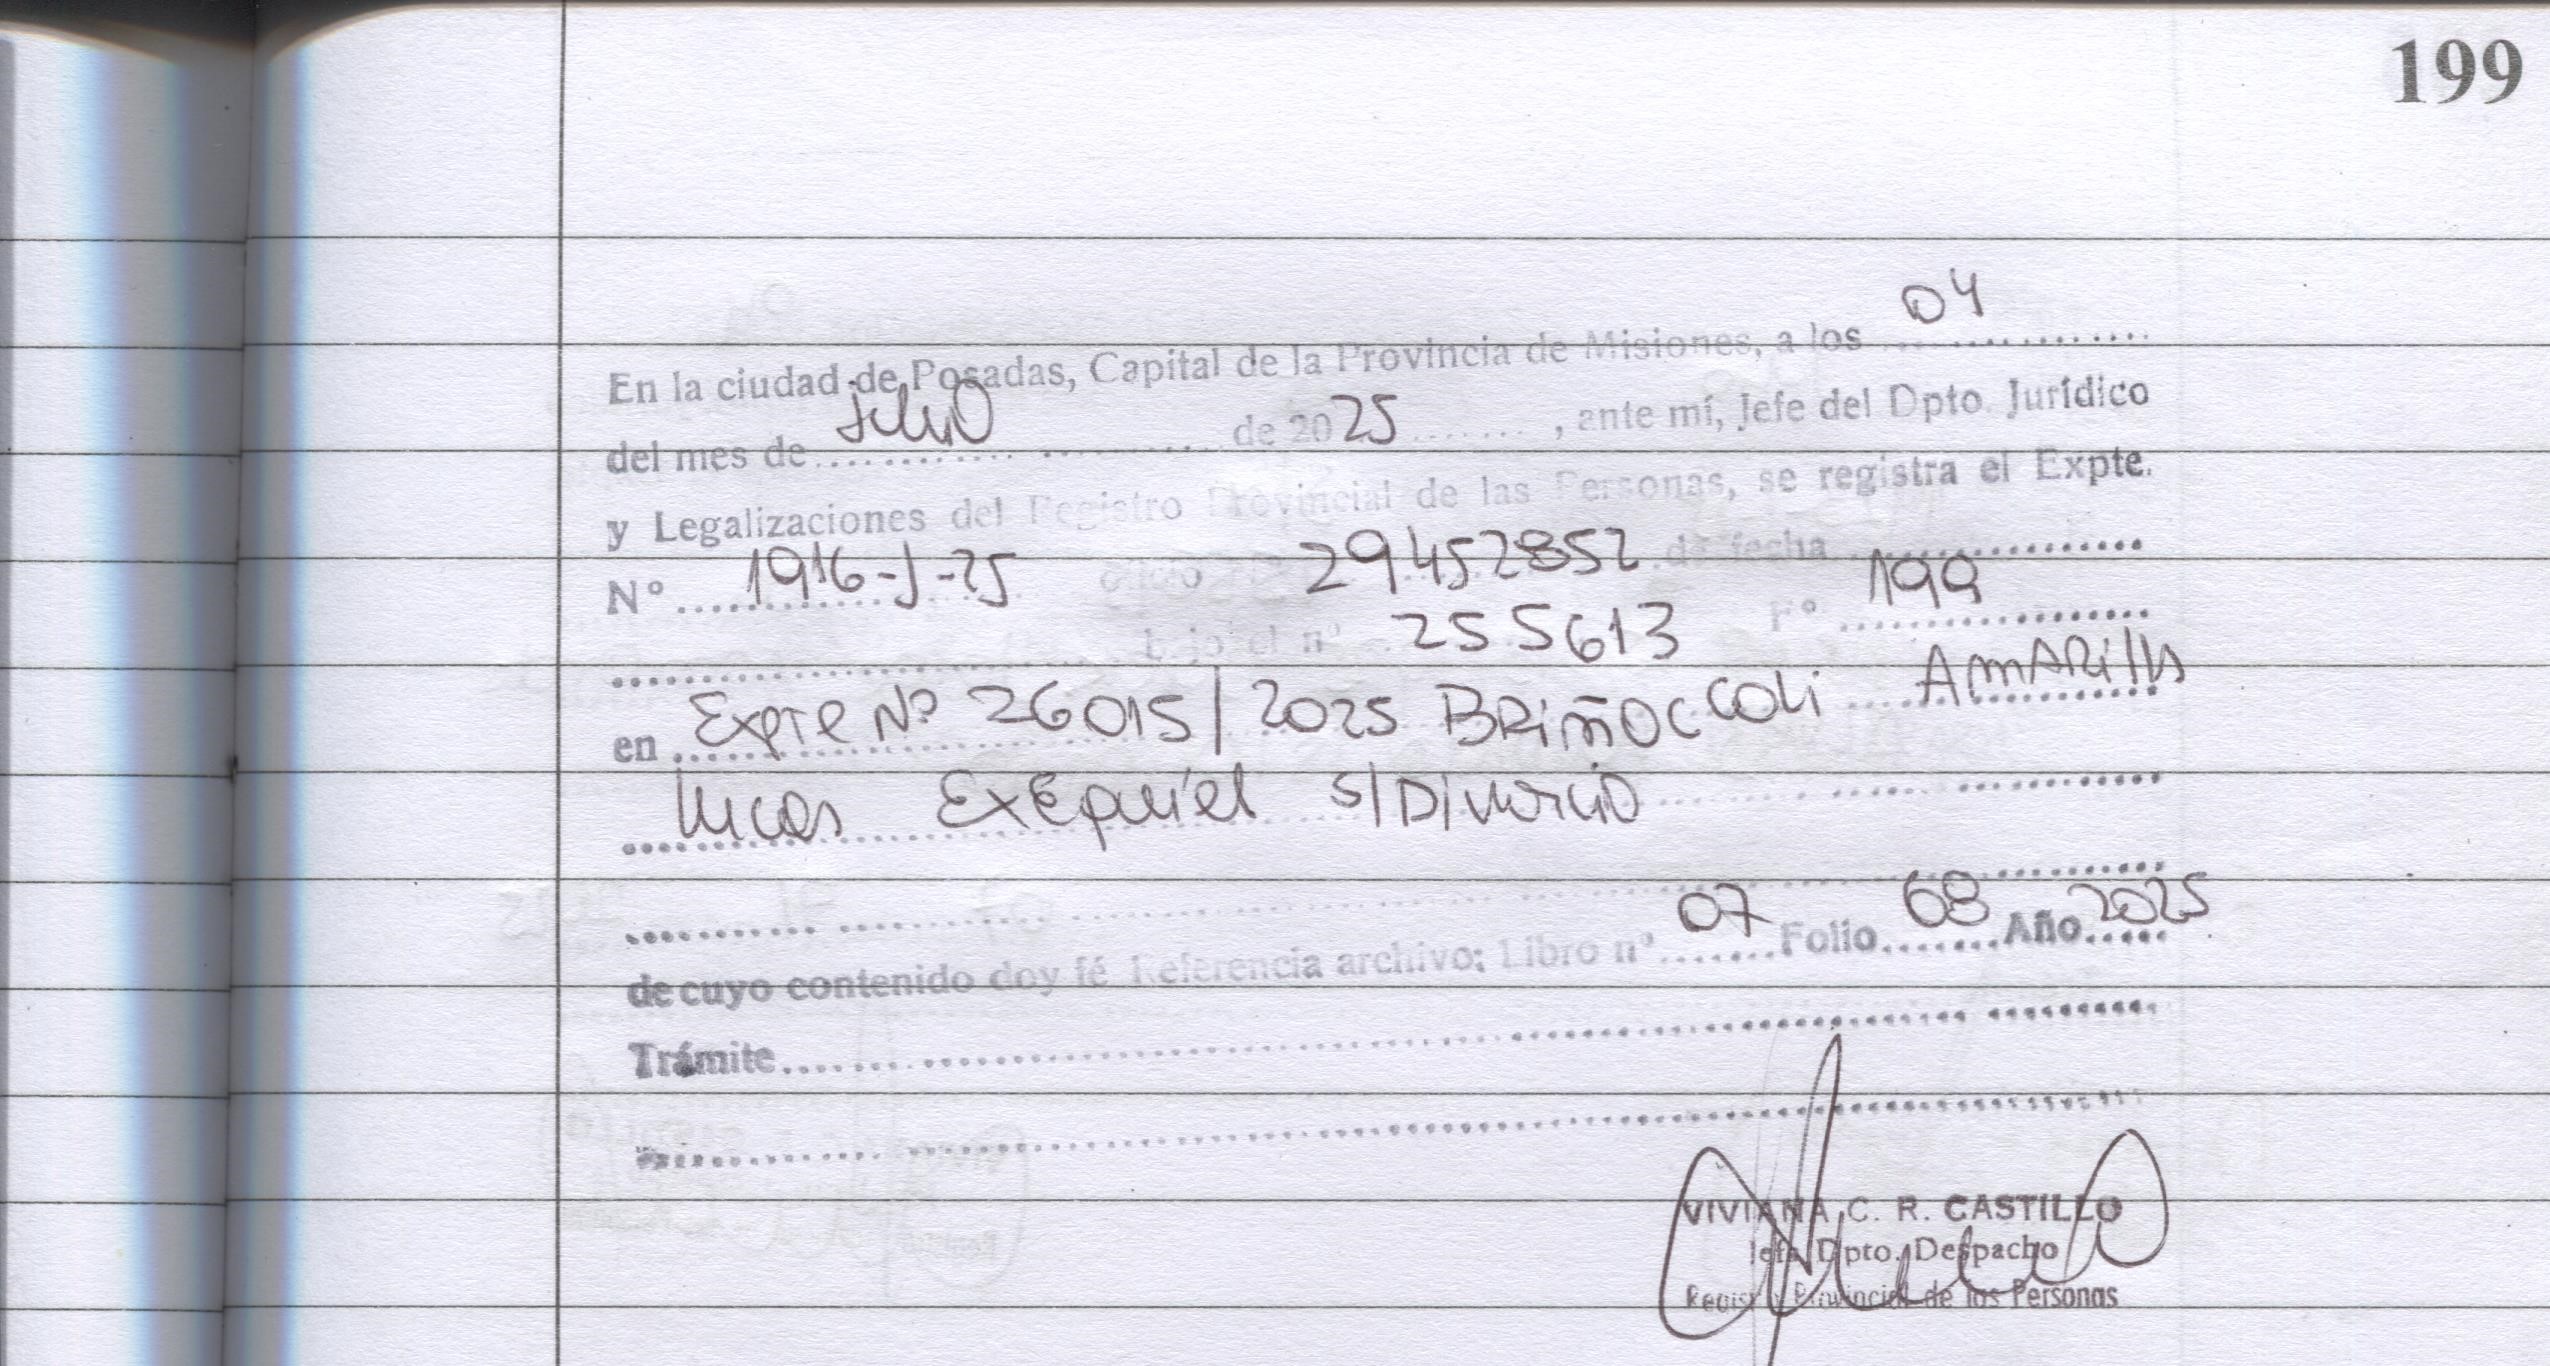 199
En la ciudad de Posadas, Capital de la Provincia de Misiones, a los 04
del mes de Julio de 2025, ante mí, Jefe del Dpto. Jurídico
y Legalizaciones del Registro Provincial de las Personas, se registra el Expte.
Nº 1916-J-25 oficio 29452852 de fecha
bajo el nº 255613 Fº 199
en Expte Nº 26015/2025 BRiÑOCCOLi AMARillA
lucas ExEquiel s/Divorcio
07 68 2025
de cuyo contenido doy fé Referencia archivo: Libro nº Folio Año
Trámite
VIVIANA C. R. CASTILLO
Jefa Dpto. Despacho
Registro Provincial de las Personas